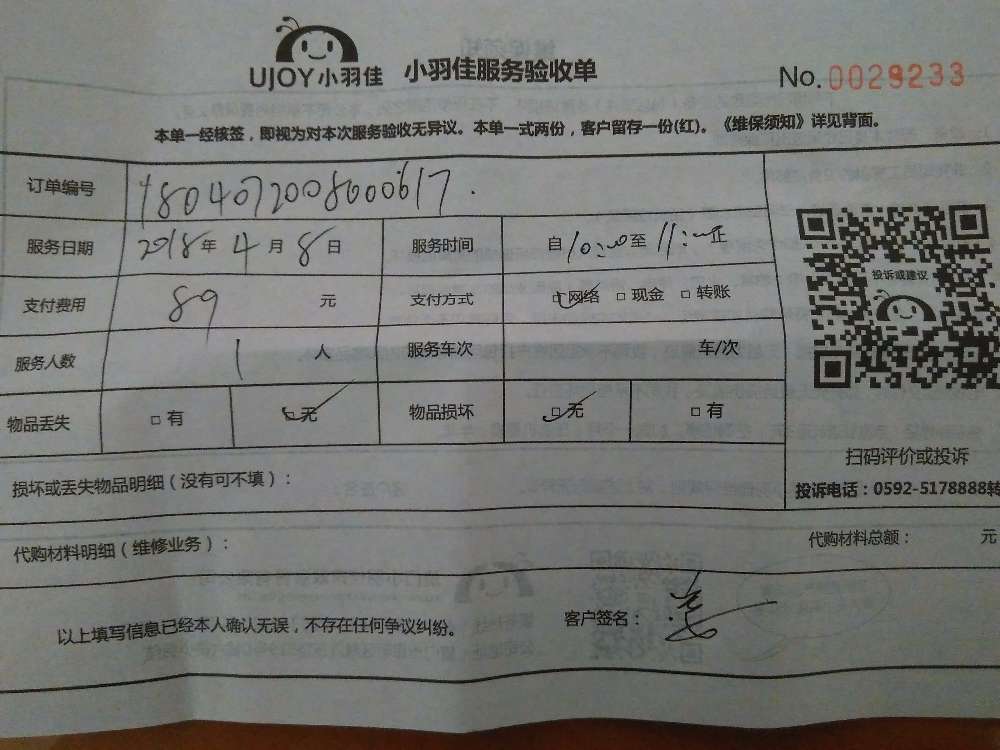 UJOY小羽佳 小羽佳服务验收单 No.0029233
本单一经核签，即视为对本次服务验收无异议。本单一式两份，客户留存一份(红)。《维保须知》详见背面。
订单编号 1804072008000617.
服务日期 2018年4月8日 服务时间 自10:00至11:00止
支付费用 89 元 支付方式 □网络 □现金 □转账
投诉或建议
服务人数 1 人 服务车次 车/次
物品丢失 □有 □无 物品损坏 □无 □有
扫码评价或投诉
损坏或丢失物品明细（没有可不填）：
投诉电话：0592-5178888转
代购材料明细（维修业务）： 代购材料总额： 元
以上填写信息已经本人确认无误，不存在任何争议纠纷。 客户签名：